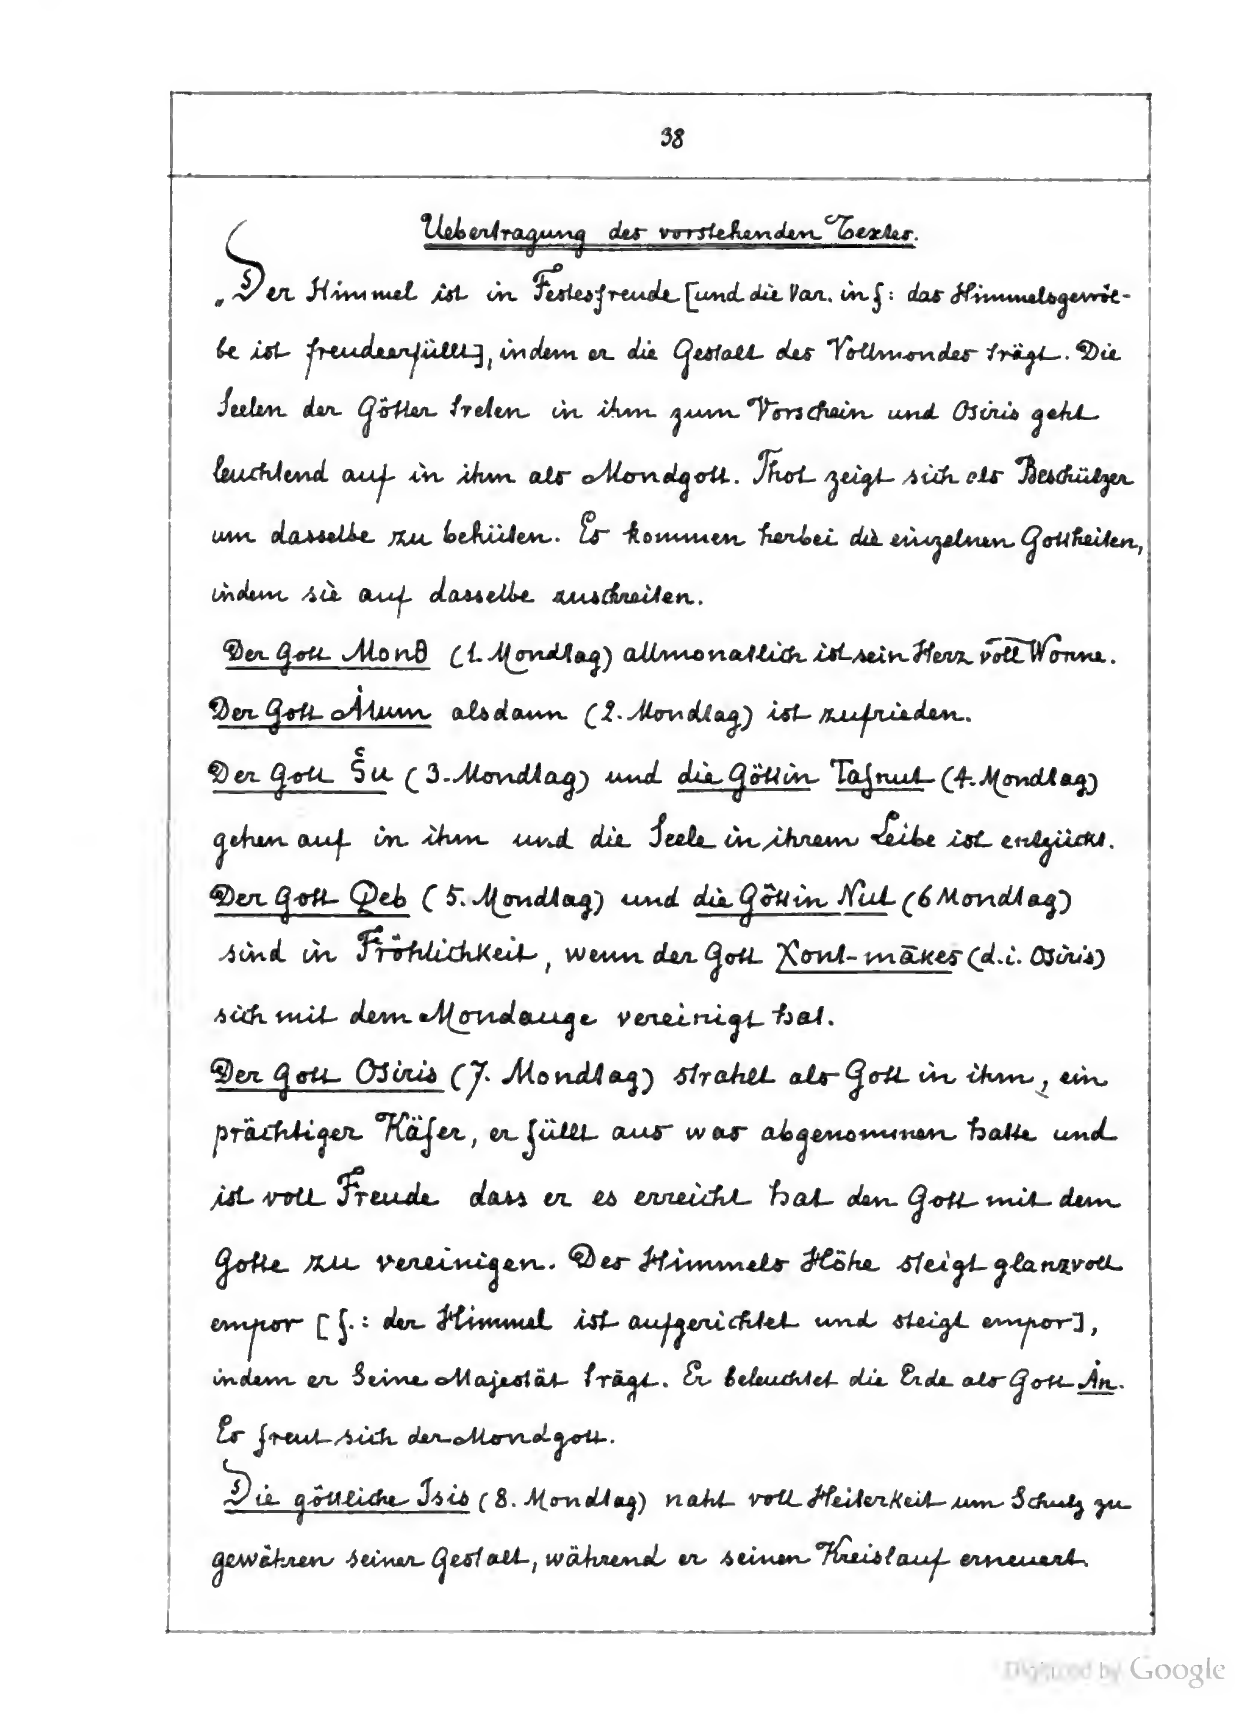 38
Uebertragung des vorstehenden Textes.
„Der Himmel ist in Festesfreude [und die Var. in f: das Himmelsgewöl-
be ist freudeerfüllt], indem er die Gestalt des Vollmondes trägt. Die
Seelen der Götter treten in ihm zum Vorschein und Osiris geht
leuchtend auf in ihm als Mondgott. Thot zeigt sich als Beschützer
um dasselbe zu behüten. Es kommen herbei die einzelnen Gottheiten,
indem sie auf dasselbe zuschreiten.
Der Gott Monθ (1. Mondtag) allmonatlich ist sein Herz voll Wonne.
Der Gott Ȧtum alsdann (2. Mondtag) ist zufrieden.
Der Gott Šu (3. Mondtag) und die Göttin Tafnut (4. Mondtag)
gehen auf in ihm und die Seele in ihrem Leibe ist entzückt.
Der Gott Qeb (5. Mondtag) und die Göttin Nut (6 Mondtag)
sind in Fröhlichkeit, wenn der Gott Χont-mākes (d.i. Osiris)
sich mit dem Mondauge vereinigt hat.
Der Gott Osiris (7. Mondtag) strahlt als Gott in ihm, ein
prächtiger Käfer, er füllt aus was abgenommen hatte und
ist voll Freude dass er es erreicht hat den Gott mit dem
Gotte zu vereinigen. Des Himmels Höhe steigt glanzvoll
empor [f.: der Himmel ist aufgerichtet und steigt empor],
indem er Seine Majestät trägt. Er beleuchtet die Erde als Gott Ȧn.
Es freut sich der Mondgott.
Die göttliche Isis (8. Mondtag) naht voll Heiterkeit um Schutz zu
gewähren seiner Gestalt, während er seinen Kreislauf erneuert.
Digitized by Google